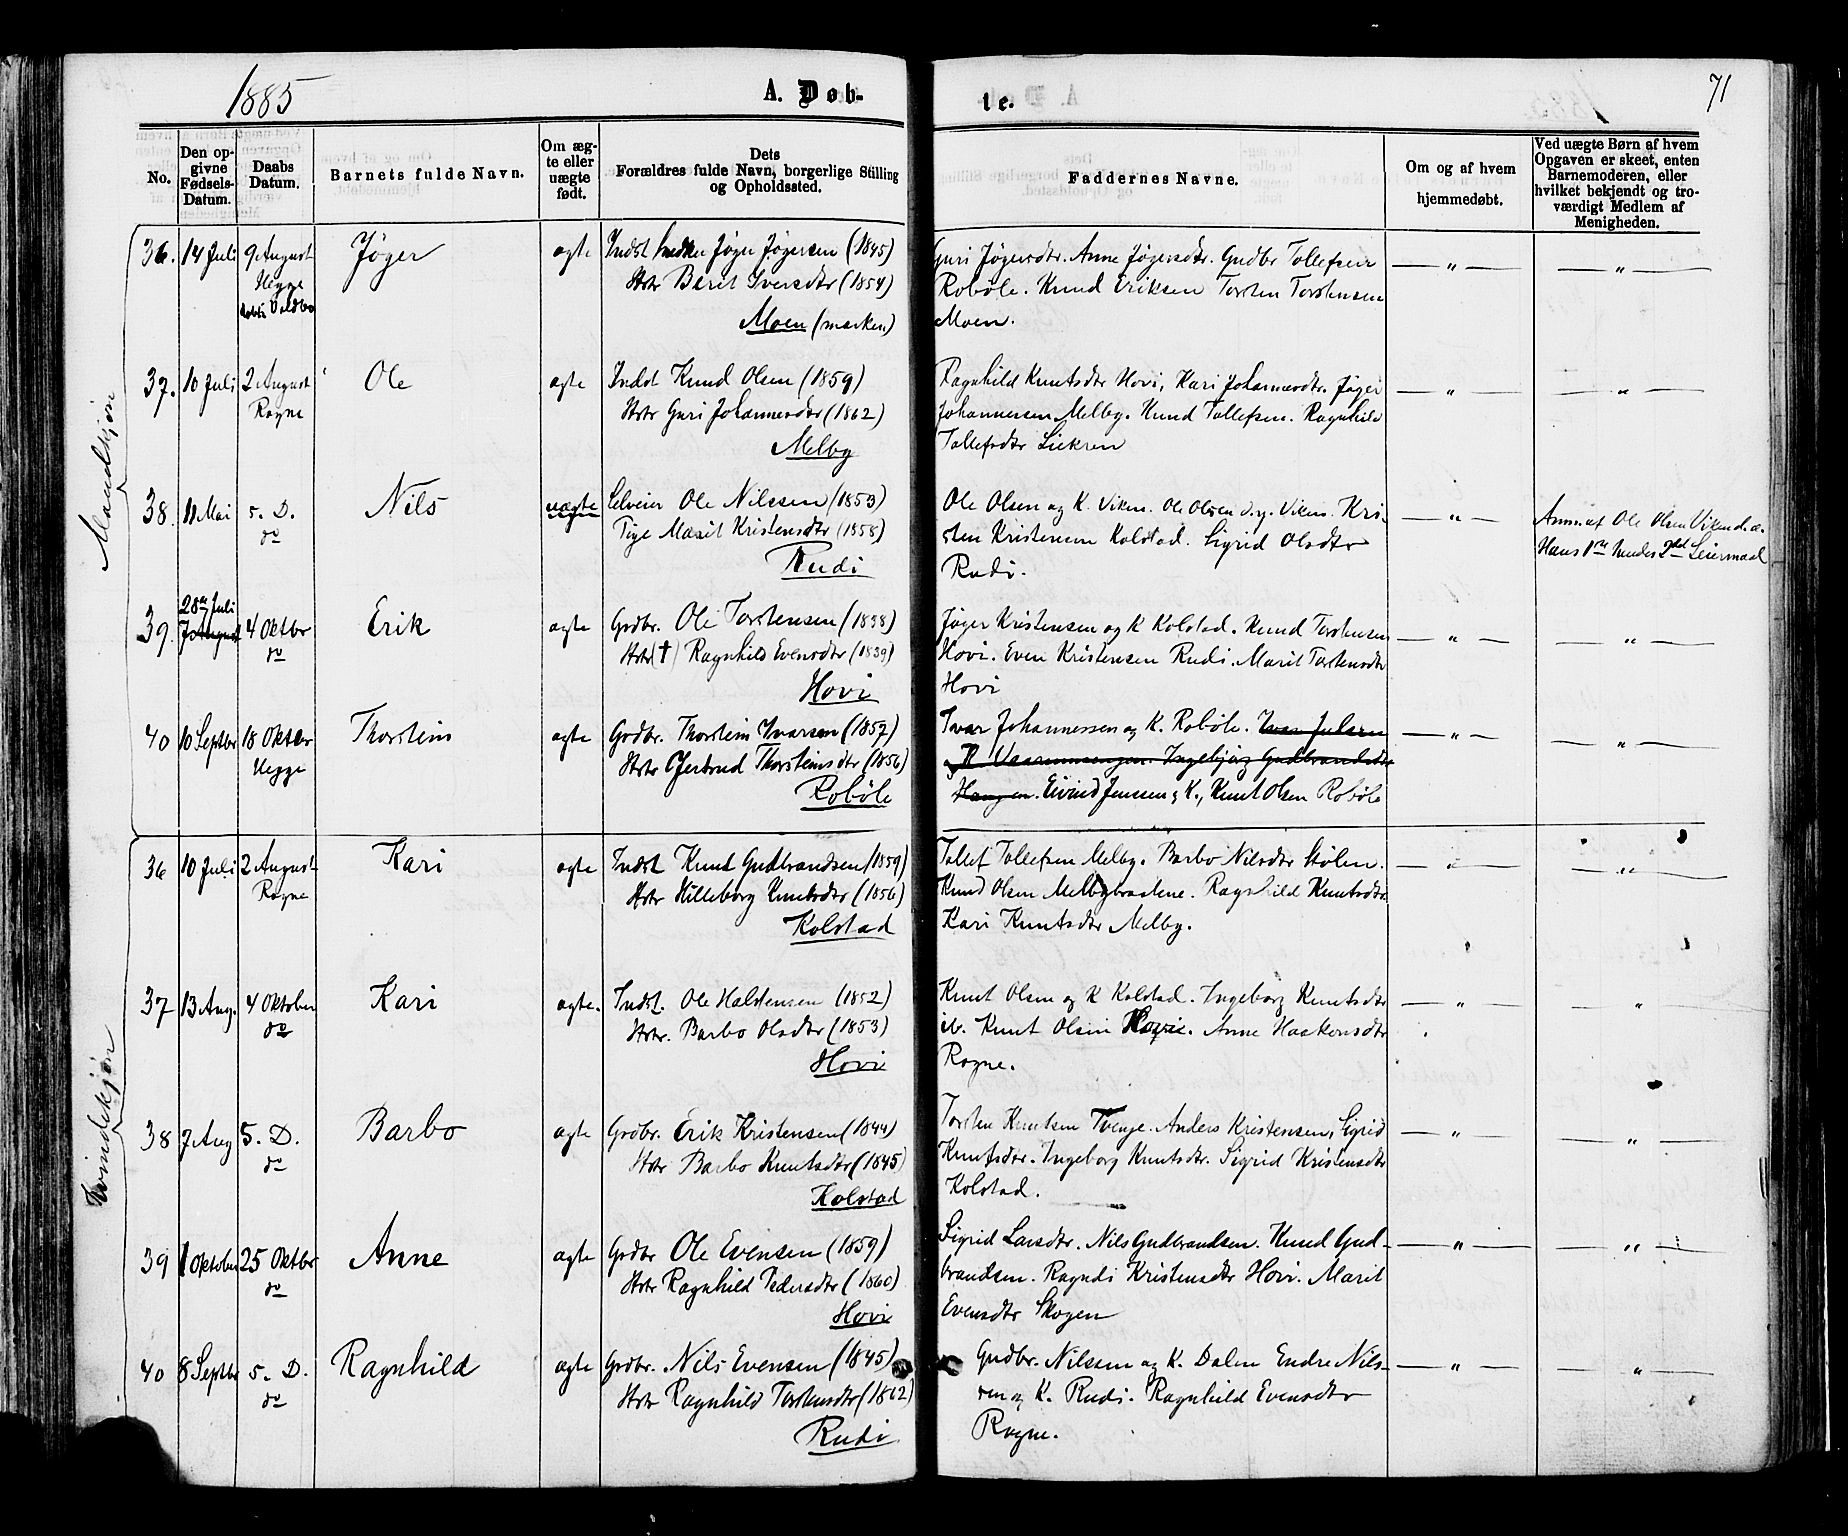 1885
A. Døb-
te.
71
No.
Den op-
givne
Fødsels-
Datum.
Daabs
Datum.
Barnets fulde Navn.
Om æg-
te eller
uægte
født.
Dets
Forældres fulde Navn, borgerlige Stilling
og Opholdssted.
Faddernes Navne.
Om og af hvem
hjemmedøbt.
Ved uægte Børn af hvem
Opgaven er skeet, enten
Barnemoderen, eller
hvilket bekjendt og tro-
værdigt Medlem af
Menigheden.
Mandkjøn
36. 14 Juli 9 August Jøger ægte Indst Jøger Jøgersen (1845) Guri Jøgersdtr. Anne Jøgersdtr. Gudbr Tollefsen — " — — " —
Hegge Hstr Berit Iversdtr (1854) Robøle. Knud Eriksen Torsten Torstensen
Moen (marken) Moen.
37. 10 Juli 2 August Ole ægte Indst Knud Olsen (1859) Ragnhild Knutsdtr Hovi, Kari Johannesdtr. Jøger — " — — " —
Rogne Hstr Guri Johannesdtr (1862) Johannessen Melby. Knud Tollefsen. Ragnhild
Melby Tollefsdtr
38. 11 Mai 5. D. Nils uægte Selveier Ole Nilssen (1853) Ole Olsen og K. Viken. Ole Olsen d.y. Viken. Kri- — " — Anm. af Ole Olsen Viken
do Pige Marit Kristensdtr (1858) sten Kristensen Kolstad. Sigrid Olsdtr Hans 1ste hendes 2det Leiermaal
Rudi Rudi.
28de Juli
39. 7 August 4 Oktbr Erik ægte Grdbr. Ole Torstensen (1838) Jøger Kristensen og K Kolstad. Knud Torstensen — " — — " —
do Hstr (†) Ragnhild Evensdtr (1839) Hovi. Even Kristensen Rudi. Marit Torstensdtr
Hovi Hovi
40 10 Septbr 18 Oktbr Thorstein ægte Grdbr. Thorstein Ivarsen (1852) Ivar Johannessen og K. Robøle. Ivar Julsen — " — — " —
Hegge Hstr Gjertrud Thorsteinsdtr (1856) og K Ingebjørg Gudbrandsdtr
Robøle Haugen. Eivind Jenssen og K., Knut Olsen Robøle
Kvindekjøn
36 10 Juli 2 August Kari ægte Indst Knut Gudbrandsen (1859) Tollef Tollefsen Melby. Barbo Nilsdtr Stølen. — " — — " —
Rogne Hstr Hilleborg Knutsdtr (1856) Knud Olsen Melbybraatene. Ragnhild Knutsdtr.
Kolstad Kari Knutsdtr Melby.
37 13 Aug. 4 Oktober Kari ægte. Indst. Ole Halstensen (1852) Knut Olsen og K Kolstad. Ingeborg Knutsdtr — " — "
do Hstr. Barbo Olsdtr (1853) ib. Knut Olsen Hovi. Anne Haakensdtr
Hovi Rogne.
38 7 Aug 5. D. Barbo ægte Grdbr. Erik Kristensen (1844) Torsten Knutsen Tvenge. Anders Kristensen, Sigrid — " — — " —
do Hstr Barbo Knutsdtr (1845) Knutsdtr. Ingeborg Knutsdtr. Sigrid Kristensdtr
Kolstad Kolstad.
39 1 Oktober 25 Oktbr Anne ægte Grdbr Ole Evensen (1859) Sigrid Larsdtr. Nils Gudbrandsen. Knud Gud- — " — — " —
do Hstr Ragnhild Pedersdtr (1860) brandsen. Ragndi Kristensdtr Hovi. Marit
Hovi Evensdtr Skogen
40 8 Septbr 5. D. Ragnhild ægte Grdbr. Nils Evensen (1845) Gudbr. Nilsen og K. Dalen Endre Nils- — " — — " —
do Hstr Ragnhild Torstensdtr (1862) sen og K. Rudi. Ragnhild Evensdtr
Rudi Rogne.